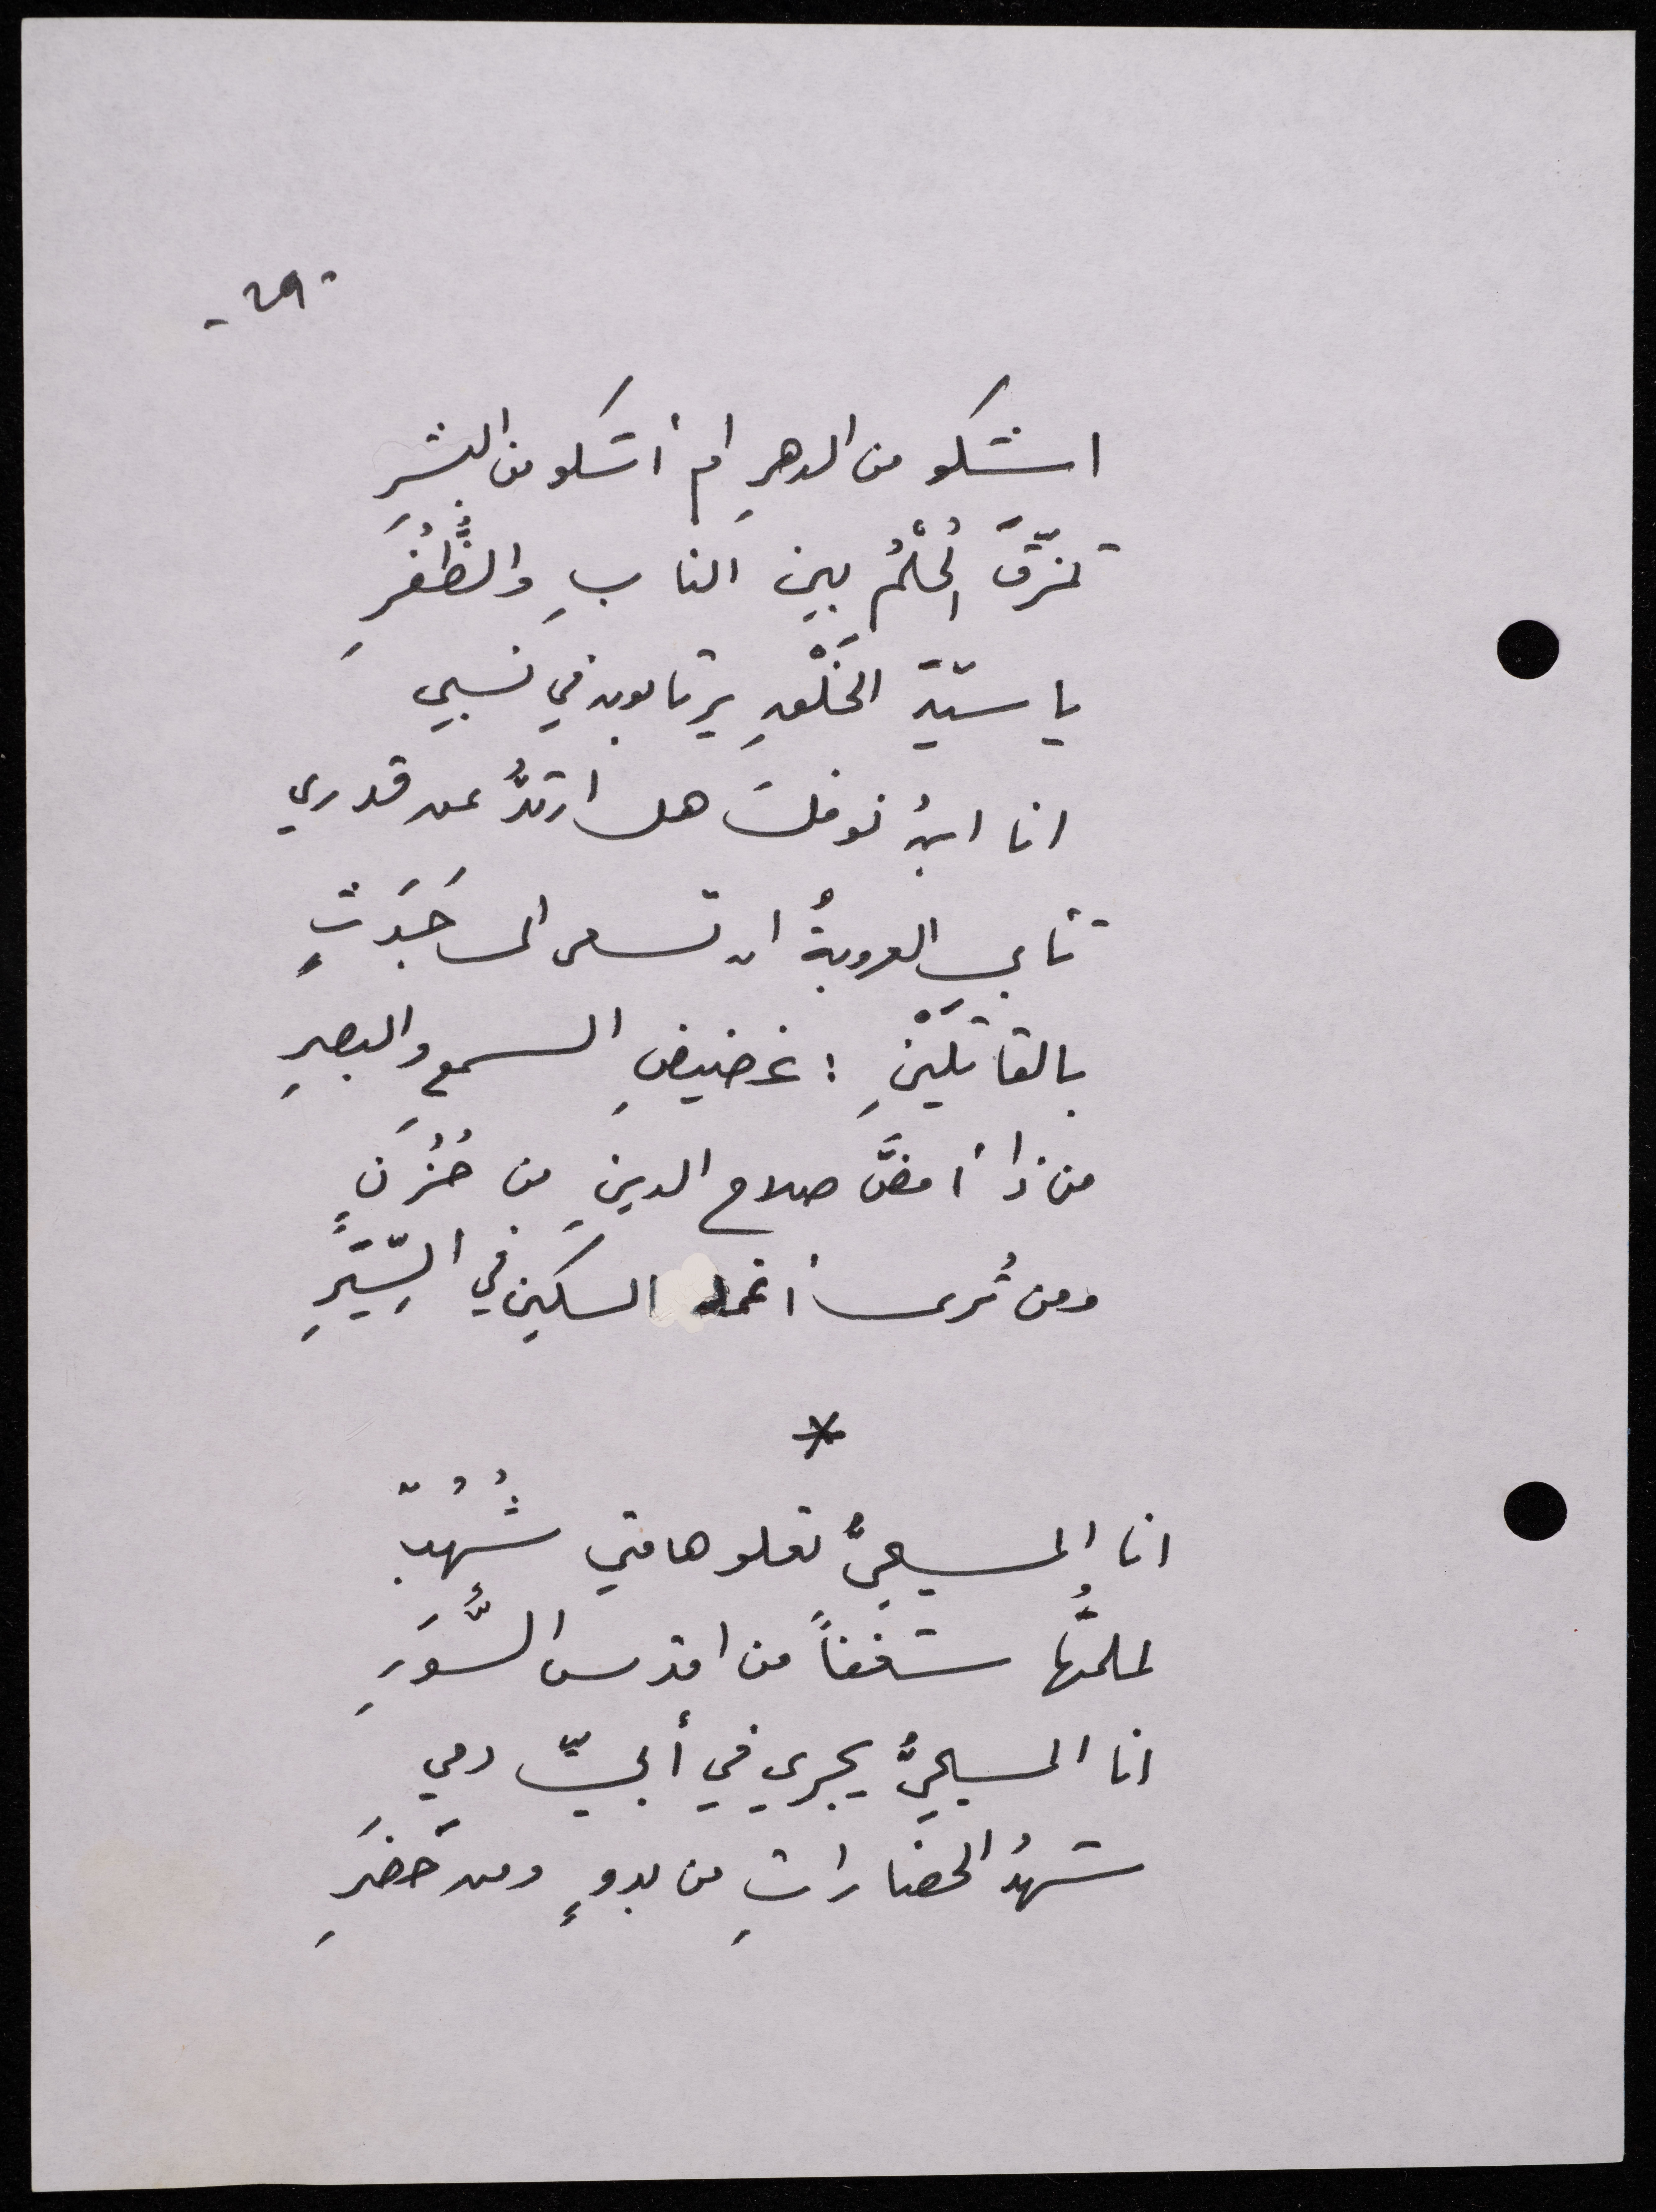 -٢٩-
اشكو من الدهرِ ام أشكو من البشرِ
تمزّقَ الحُلْمُ بين النابِ والظُّفُرِ
يا سيّدَ الخَلْقِ يرتابون في نسبي
انا ابنُ نوفلَ هل ارتدُّ عن قدري
تأبى العروبةُ ان تسعى الى جَدَثٍ
بالقاتلَيْنِ : غضيضِ السمعِ والبصرِ
من ذا أمضَّ صلاح الدينِ من حُزُنٍ
ومن تُرى أغمد السكين في السِّيَرِ
*
انا المسيحيُّ تعلو هامتي شُهُبٌ
لملمتُها شغفاً من اقدس السُّوَرِ
انا المسيحيُّ يجري في أبيّ دمي
شهدُ الحضاراتِ من بدوٍ ومن حَضَرِ